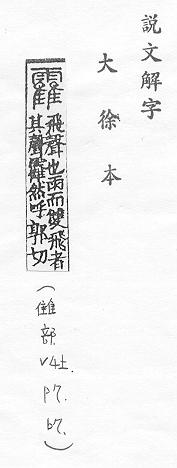 説文解字
大徐本
靃 飛聲也雨而雙飛者
其聲靃然呼郭切
(雔部
V4上.
p7.
b7.)